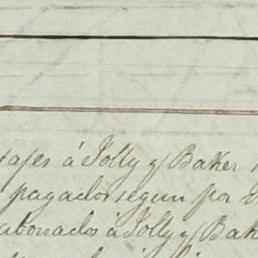 tajes á Jolly y Baker
pagador segun por
abonado á Jolly y Bak